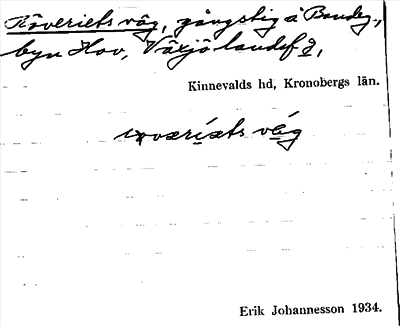 Röveriets väg, gångstig å Bondeg.,
byn Hov, Växjö landsf 2,
Kinnevalds hd, Kronobergs län.
Erik Johannesson 1934.